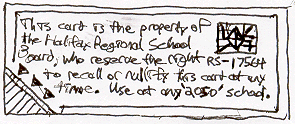 This card is the property of
the Halifax Regional School
Board, who reserve the right RS-17564
to recall or nullify this card at any
time. Use at any 2050' school.